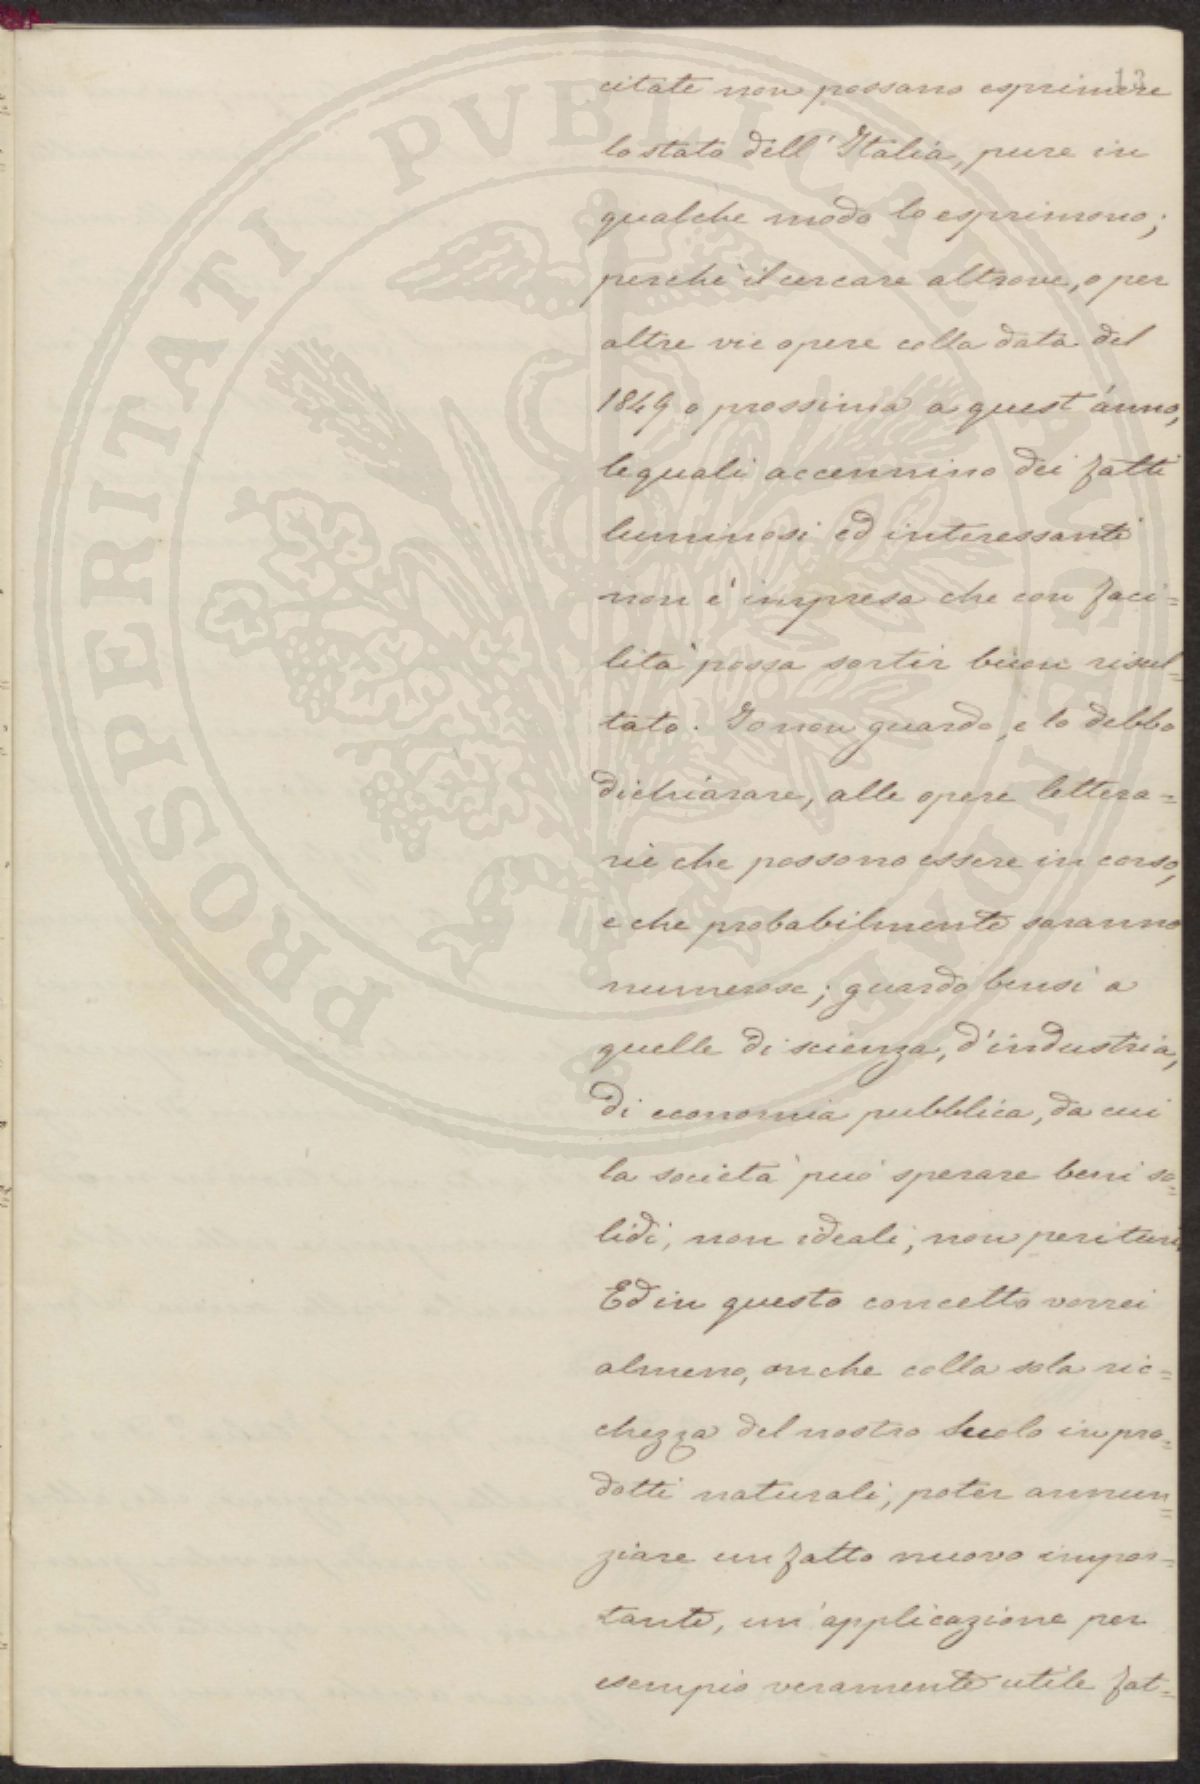 13
citate non possano esprimere
lo stato dell'Italia, pure in
qualche modo lo esprimono;
perchè il cercare altrove, o per
altre vie opere colla data del
1849 o prossima a quest'anno,
le quali accennino dei fatti
luminosi ed interessanti
non è impresa che con faci=
lità possa sortir buon risul=
tato. Io non guardo, e lo debbo
dichiarare, alle opere lettera=
rie che possono essere in corso,
e che probabilmente saranno
numerose; guardo bensì a
quelle di scienza, d'industria,
di economia pubblica, da cui
la società può sperare beni so=
lidi, non ideali, non perituri
Ed in questo concetto vorrei
almeno, anche colla sola ric=
chezza del nostro suolo in pro=
dotti naturali, poter annun=
ziare un fatto nuovo impor=
tante, un'applicazione per
esempio veramente utile fat=
PROSPERITATI PVBLICAE AVGENDAE